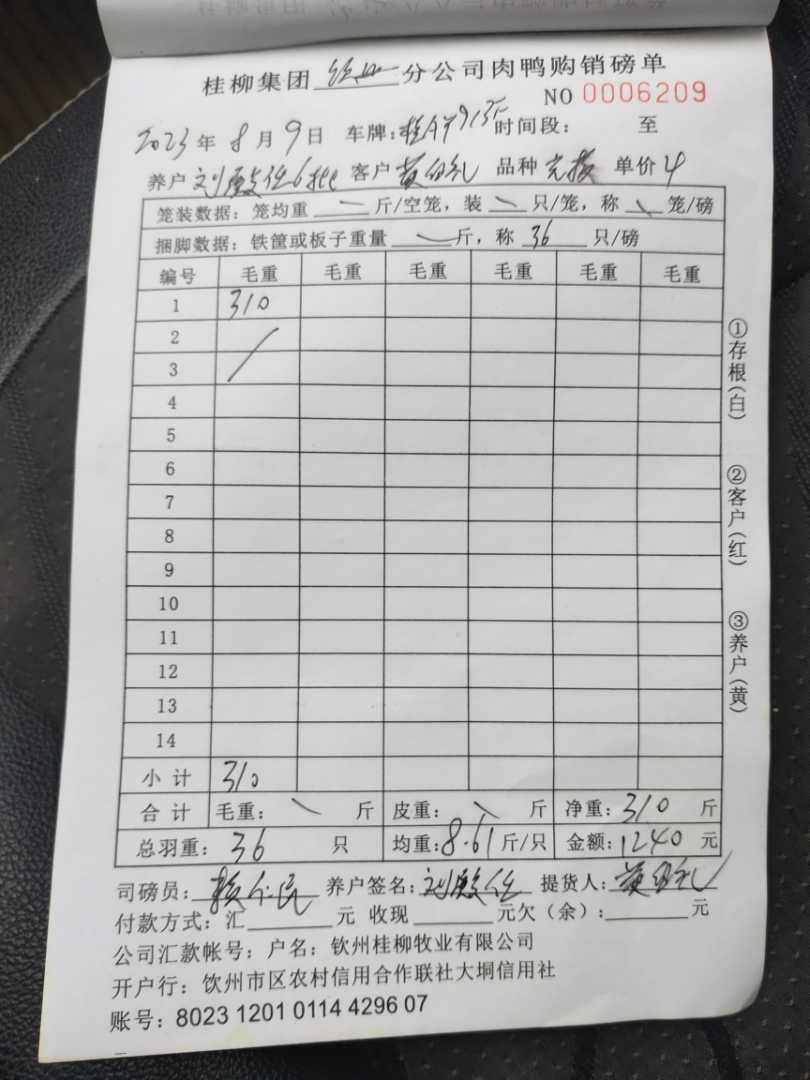 桂柳集团 分公司肉鸭购销磅单
NO 0006209
2023年8月9日 车牌: 时间段: 至
养户 刘殿任6批 客户 黄 礼 品种 单价 4
笼装数据: 笼均重 斤/空笼, 装 只/笼, 称 笼/磅
捆脚数据: 铁筐或板子重量 斤, 称 36 只/磅
编号 毛重 毛重 毛重 毛重 毛重 毛重
1 310
2
3
4
5
6
7
8
9
10
11
12
13
14
小计 310
合计 毛重: 斤 皮重: 斤 净重: 310 斤
总羽重: 36 只 均重: 8.61 斤/只 金额: 1240 元
司磅员: 养户签名: 刘殿任 提货人: 黄 礼
付款方式: 汇 元 收现 元欠(余): 元
公司汇款帐号: 户名: 钦州桂柳牧业有限公司
开户行: 饮州市区农村信用合作联社大垌信用社
账号: 8023 1201 0114 4296 07
①存根(白)
②客户(红)
③养户(黄)